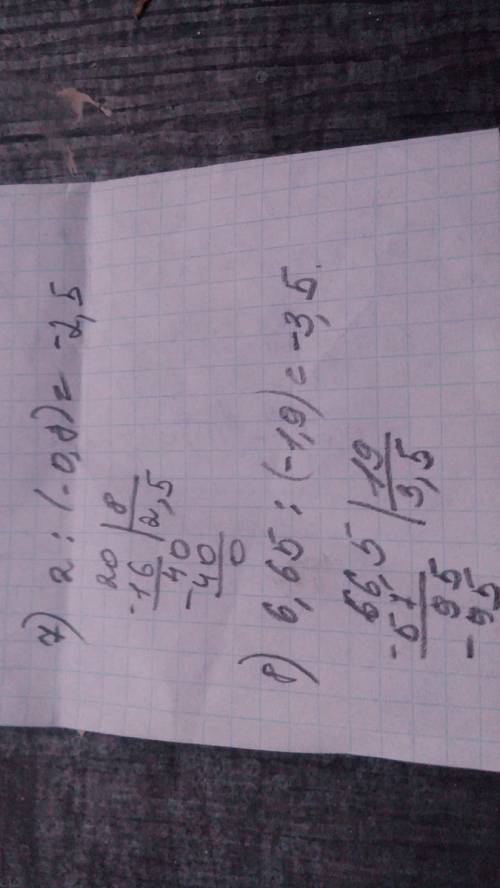 7) 2 : (-0,8) = -2,5
20 | 8
-16 | 2,5
40
-40
0
8) 6,65 : (-1,9) = -3,5.
66,5 | 19
-57 | 3,5
95
-95